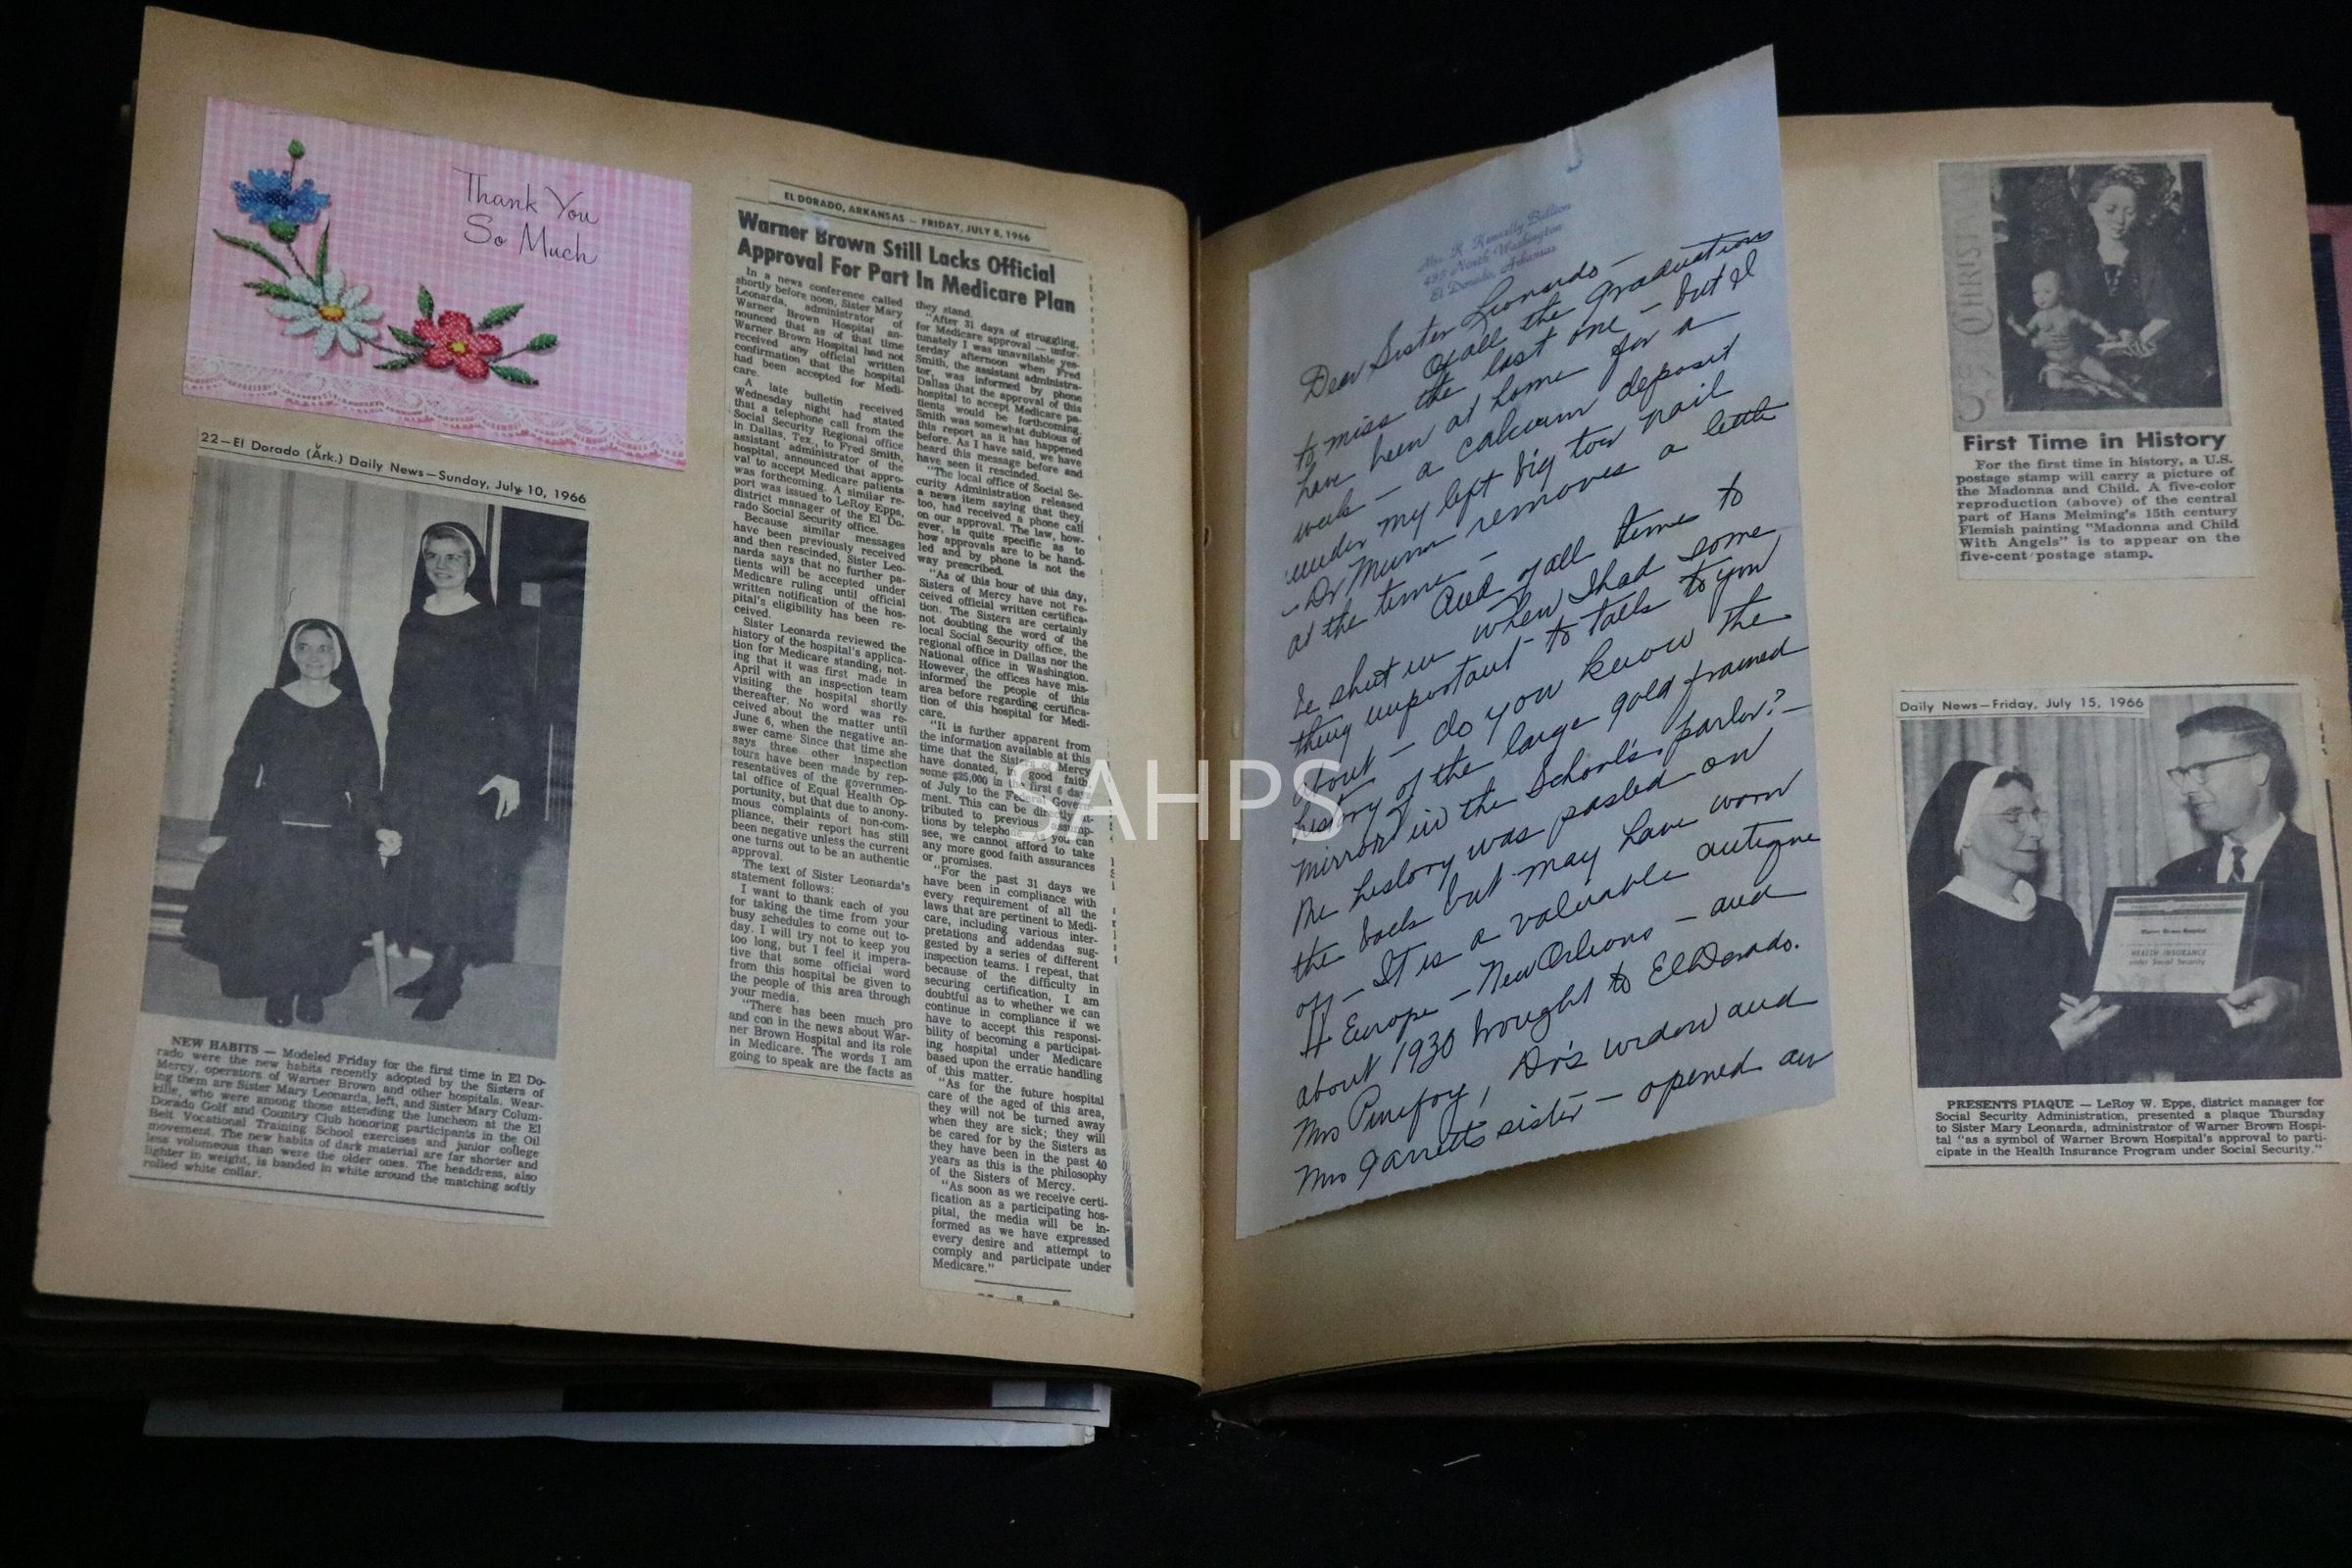 Thank You
So Much
22—El Dorado (Ark.) Daily News—Sunday, July 10, 1966
NEW HABITS — Modeled Friday for the first time in El Do-
rado were the new habits recently adopted by the Sisters of
Mercy, operators of Warner Brown and other hospitals. Wear-
ing them are Sister Mary Leonarda, left, and Sister Mary Colum-
kille, who were among those attending the luncheon at the El
Dorado Golf and Country Club honoring participants in the Oil
Belt Vocational Training School exercises and junior college
movement. The new habits of dark material are far shorter and
less volumeous than were the older ones. The headdress, also
lighter in weight, is banded in white around the matching softly
rolled white collar.
EL DORADO, ARKANSAS — FRIDAY, JULY 8, 1966
Warner Brown Still Lacks Official
Approval For Part In Medicare Plan
In a news conference called
shortly before noon, Sister Mary
Leonarda, administrator of
Warner Brown Hospital an-
nounced that as of that time
Warner Brown Hospital had not
received any official written
confirmation that the hospital
had been accepted for Medi-
care.
A late bulletin received
Wednesday night had stated
that a telephone call from the
Social Security Regional office
in Dallas, Tex., to Fred Smith,
assistant administrator of the
hospital, announced that appro-
val to accept Medicare patients
was forthcoming. A similar re-
port was issued to LeRoy Epps,
district manager of the El Do-
rado Social Security office.
Because similar messages
have been previously received
and then rescinded, Sister Leo-
narda says that no further pa-
tients will be accepted under
Medicare ruling until official
written notification of the hos-
pital's eligibility has been re-
ceived.
Sister Leonarda reviewed the
history of the hospital's applica-
tion for Medicare standing, not-
ing that it was first made in
April with an inspection team
visiting the hospital shortly
thereafter. No word was re-
ceived about the matter until
June 6, when the negative an-
swer came. Since that time she
says three other inspection
tours have been made by rep-
resentatives of the governmen-
tal office of Equal Health Op-
portunity, but that due to anony-
mous complaints of non-com-
pliance, their report has still
been negative unless the current
one turns out to be an authentic
approval.
The text of Sister Leonarda's
statement follows:
I want to thank each of you
for taking the time from your
busy schedules to come out to-
day. I will try not to keep you
too long, but I feel it impera-
tive that some official word
from this hospital be given to
the people of this area through
your media.
"There has been much pro
and con in the news about War-
ner Brown Hospital and its role
in Medicare. The words I am
going to speak are the facts as
they stand.
"After 31 days of struggling,
for Medicare approval — unfor-
tunately I was unavailable yes-
terday afternoon when Fred
Smith, the assistant administra-
tor, was informed by phone
Dallas that the approval of this
hospital to accept Medicare pa-
tients would be forthcoming.
Smith was somewhat dubious of
this report as it has happened
before. As I have said, we have
heard this message before and
have seen it rescinded.
"The local office of Social Se-
curity Administration released
a news item saying that they,
too, had received a phone call
on our approval. The law, how-
ever, is quite specific as to
how approvals are to be hand-
led and by phone is not the
way prescribed.
"As of this hour of this day,
Sisters of Mercy have not re-
ceived official written certifica-
tion. The Sisters are certainly
not doubting the word of the
local Social Security office, the
regional office in Dallas nor the
National office in Washington.
However, the offices have mis-
informed the people of this
area before regarding certifica-
tion of this hospital for Medi-
care.
"It is further apparent from
the information available at this
time that the Sisters of Mercy
have donated, in good faith
some $25,000 in the first 6 days
of July to the Federal Govern-
ment. This can be directly at-
tributed to previous assump-
tions by telephone. As you can
see, we cannot afford to take
any more good faith assurances
or promises.
"For the past 31 days we
have been in compliance with
every requirement of all the
laws that are pertinent to Medi-
care, including various inter-
pretations and addendas sug-
gested by a series of different
inspection teams. I repeat, that
because of the difficulty in
securing certification, I am
doubtful as to whether we can
continue in compliance if we
have to accept this responsi-
bility of becoming a participat-
ing hospital under Medicare
based upon the erratic handling
of this matter.
"As for the future hospital
care of the aged of this area,
they will not be turned away
when they are sick; they will
be cared for by the Sisters as
they have been in the past 40
years as this is the philosophy
of the Sisters of Mercy.
"As soon as we receive certi-
fication as a participating hos-
pital, the media will be in-
formed as we have expressed
every desire and attempt to
comply and participate under
Medicare."
SAHPS
Mrs. R.
North Washington
El Dorado, Arkansas
Dear Sister Leonardo —
Of all the graduations
to miss the last one — but I
have been at home for a
week — a calcium deposit
under my left big toe nail
— Dr Munn removes a little
at the time —
And of all times to
be shut in when I had some
thing important to talk to you
about — do you know the
history of the large gold framed
mirror in the School's parlor? —
The history was pasted on
the back but may have worn
off — It is a valuable antique
Europe — New Orleans — and
about 1930 brought to El Dorado.
Mrs Purifoy, Dr's widow and
Mrs Garrett's sister — opened an
CHRISTMAS
First Time in History
For the first time in history, a U.S.
postage stamp will carry a picture of
the Madonna and Child. A five-color
reproduction (above) of the central
part of Hans Melming's 15th century
Flemish painting "Madonna and Child
With Angels" is to appear on the
five-cent postage stamp.
Daily News—Friday, July 15, 1966
Warner Brown Hospital
HEALTH INSURANCE
under Social Security
PRESENTS PLAQUE — LeRoy W. Epps, district manager for
Social Security Administration, presented a plaque Thursday
to Sister Mary Leonarda, administrator of Warner Brown Hospi-
tal "as a symbol of Warner Brown Hospital's approval to parti-
cipate in the Health Insurance Program under Social Security."